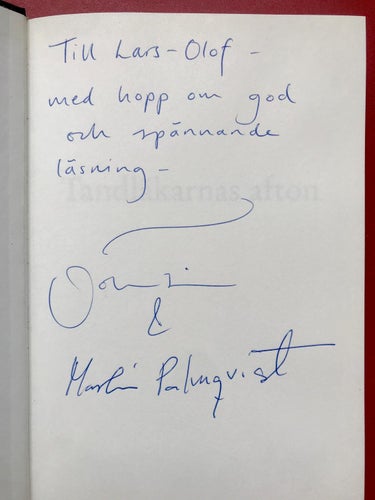 Till Lars-Olof -
med hopp om god
och spännande
läsning -
Tandläkarnas afton
&
Martin Palmqvist